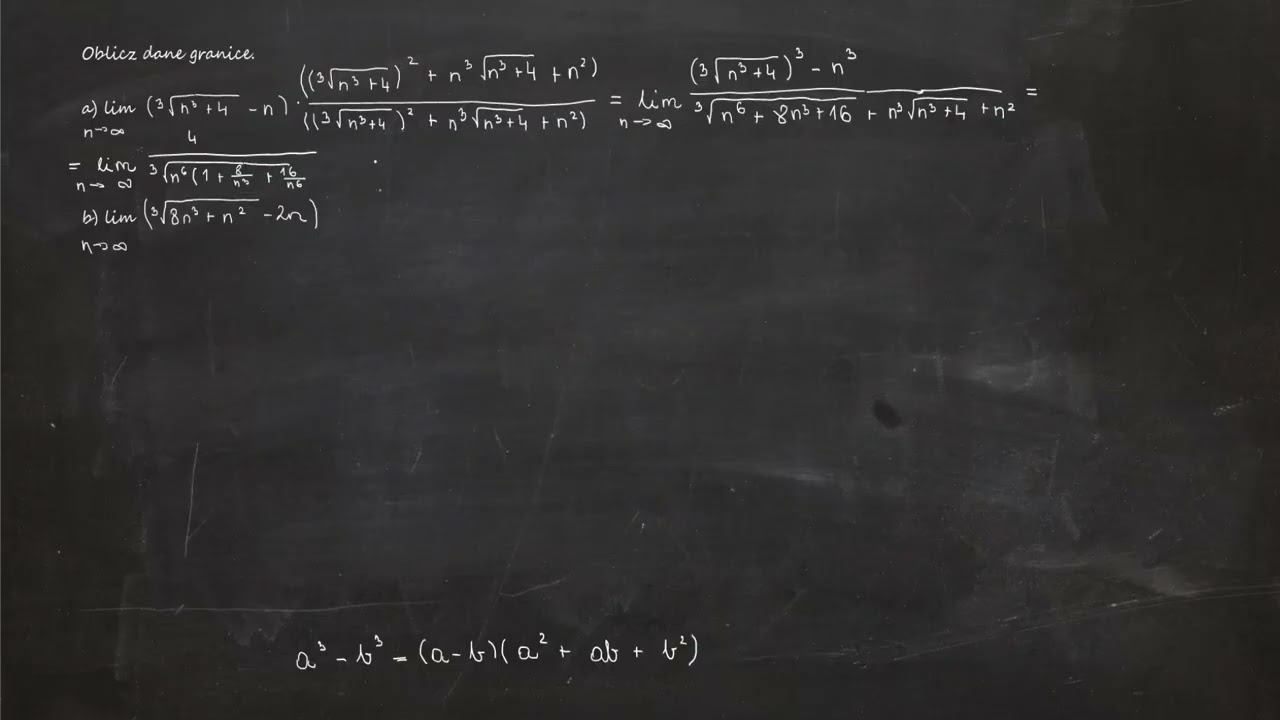 Oblicz dane granice.
a) lim n→∞ (³√(n³+4) - n) · ((³√(n³+4))² + n ³√(n³+4) + n²) / ((³√(n³+4))² + n ³√(n³+4) + n²) = lim n→∞ ((³√(n³+4))³ - n³) / (³√(n⁶ + 8n³ + 16) + n ³√(n³+4) + n²) =
= lim n→∞ 4 / ³√(n⁶(1 + 8/n³ + 16/n⁶
b) lim n→∞ (³√(8n³ + n²) - 2n)
a³ - b³ = (a-b)(a² + ab + b²)